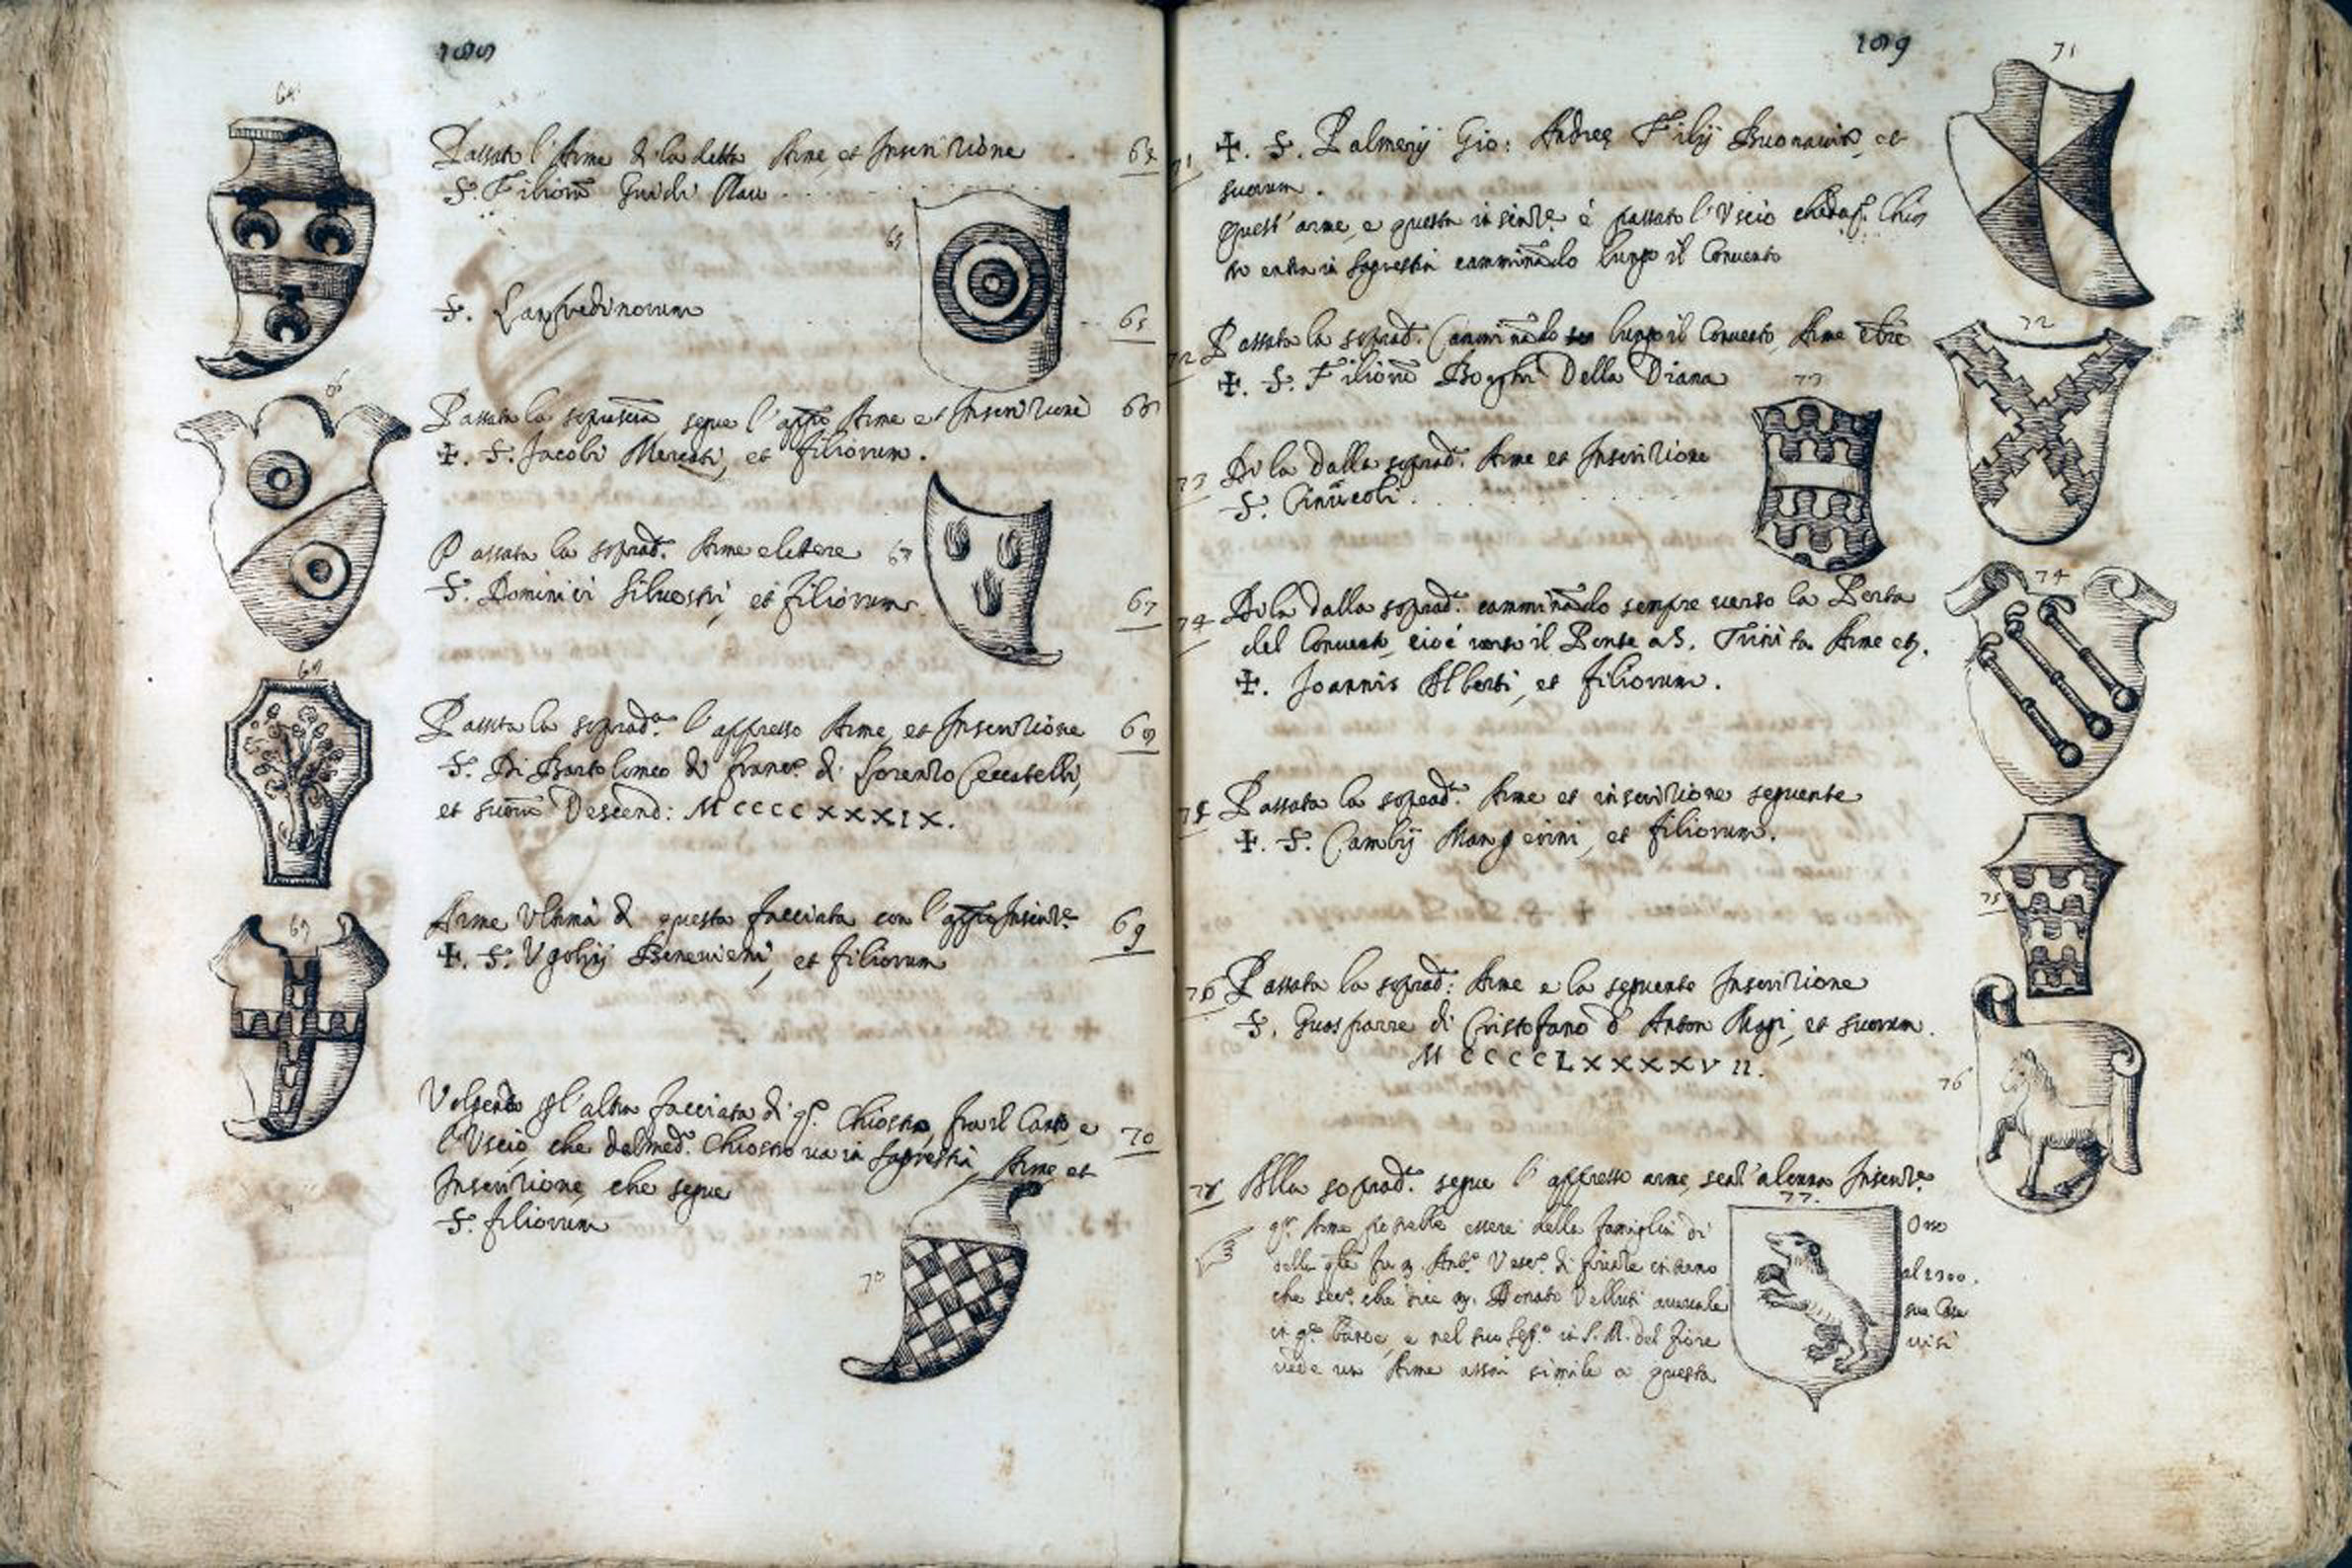 188
64
Passata l'Arme di la detta Arme, et Inscrizione 64
S. Filiorū Guidi
65
S. Lanfredinorum 65
66
Passata la segue l'appo Arme et Inscrizione 66
✠. S. Jacobi Mercati, et filiorum.
Passata la soprad.ª Arme e lettere 67
S. Dominici Silvestri, et filiorum 67
68
Passata la soprad.ª l'appresso Arme, et Inscrizione 68
S. Di Bartolomeo di Franc.º di Lorenzo Ceccatelli,
et suorū Descend: MCCCCXXXIX.
69
Arme Ultima di questa facciata con l'appo Inscriz.e 69
✠. S. Ugolini Benivieni, et filiorum
Volgendo l'altra facciata di q.º Chiostro, fra il Canto, e
l'Uscio, che dal med.º Chiostro va in Sagrestia, Arme, et 70
Inscrizione che segue
S. filiorum
70
189
71
71 ✠. S. Palmerij Gio: Andreę Filij Buonavia, et
suorum.
Quest'arme, e questa inscriz.e è passato l'Uscio che da q.º Chios
tro entra in Sagrestia camminādo lungo il Convento
72
72 Passata la soprad.ª Camminādo lungo il Convento, Arme
✠. S. Filiorū Borghi Della Diana
73
73 Di la dalla soprad.ª Arme et Inscrizione
S.
74
74 Di là dalla soprad.ª camminādo sempre verso la Porta
del Convento, cioè verso il Ponte a S. Trinita Arme et.
✠. Joannis Alberti, et filiorum.
75 Passata la soprad.ª Arme et inscrizione seguente
✠. S. Cambij Mangioni, et filiorum.
75
76 Passata la soprad: Arme e la seguente Inscrizione
S. Guasparre di Cristofano d'Anton Magi, et suorum.
MCCCCLXXXXVII.
76
Alla soprad.ª segue l'appresso arme, senz'alcuna Inscriz.e
77.
q.ª Arme potrebbe essere della famiglia di Orso
della q.le fu Ant.º Vesc.º di Firenze al 1300.
che sec.º che dice m. Donato Velluti aveva le sue Case
in q.e bande, e nel suo Sep.º in S. M. del Fiore vi si
vede un Arme assai simile a questa